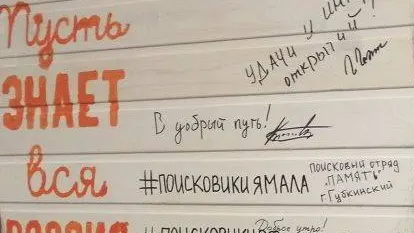 Пусть
УДАЧИ У
открытий
ЗНАЕТ
В добрый путь!
вся
#ПОИСКОВИКИЯМАЛА
поисковый отряд
„ПАМЯТЬ"
г. Губкинский
РОССИЯ
Доброе утро!
#ПОИСКОВИКИ